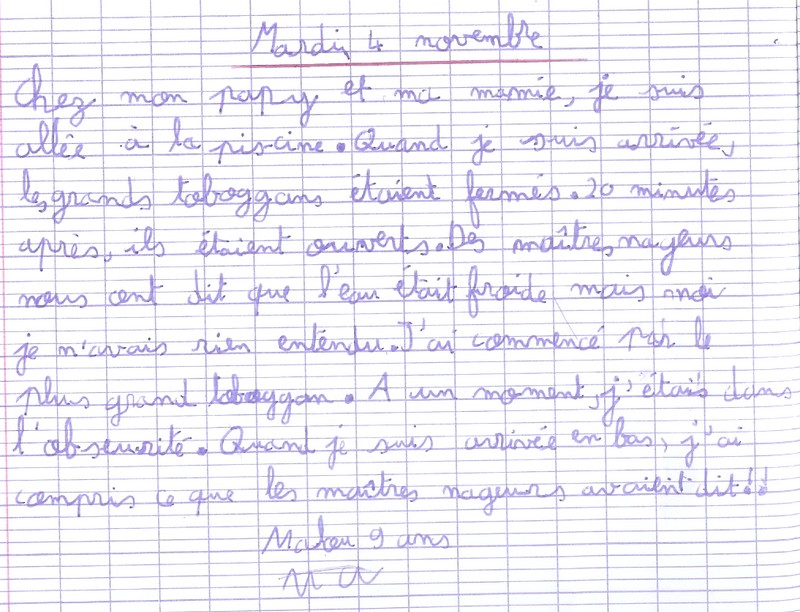 Mardi 4 novembre
Chez mon papy et ma mamie, je suis
allée à la piscine. Quand je suis arrivée,
les grands toboggans étaient fermés. 20 minutes
après, ils étaient ouverts. Des maîtres nageurs
nous ont dit que l'eau était froide mais moi
je n'avais rien entendu. J'ai commencé par le
plus grand toboggan. A un moment, j'étais dans
l'obscurité. Quand je suis arrivée en bas, j'ai
compris ce que les maîtres nageurs avaient dit!!
9 ans